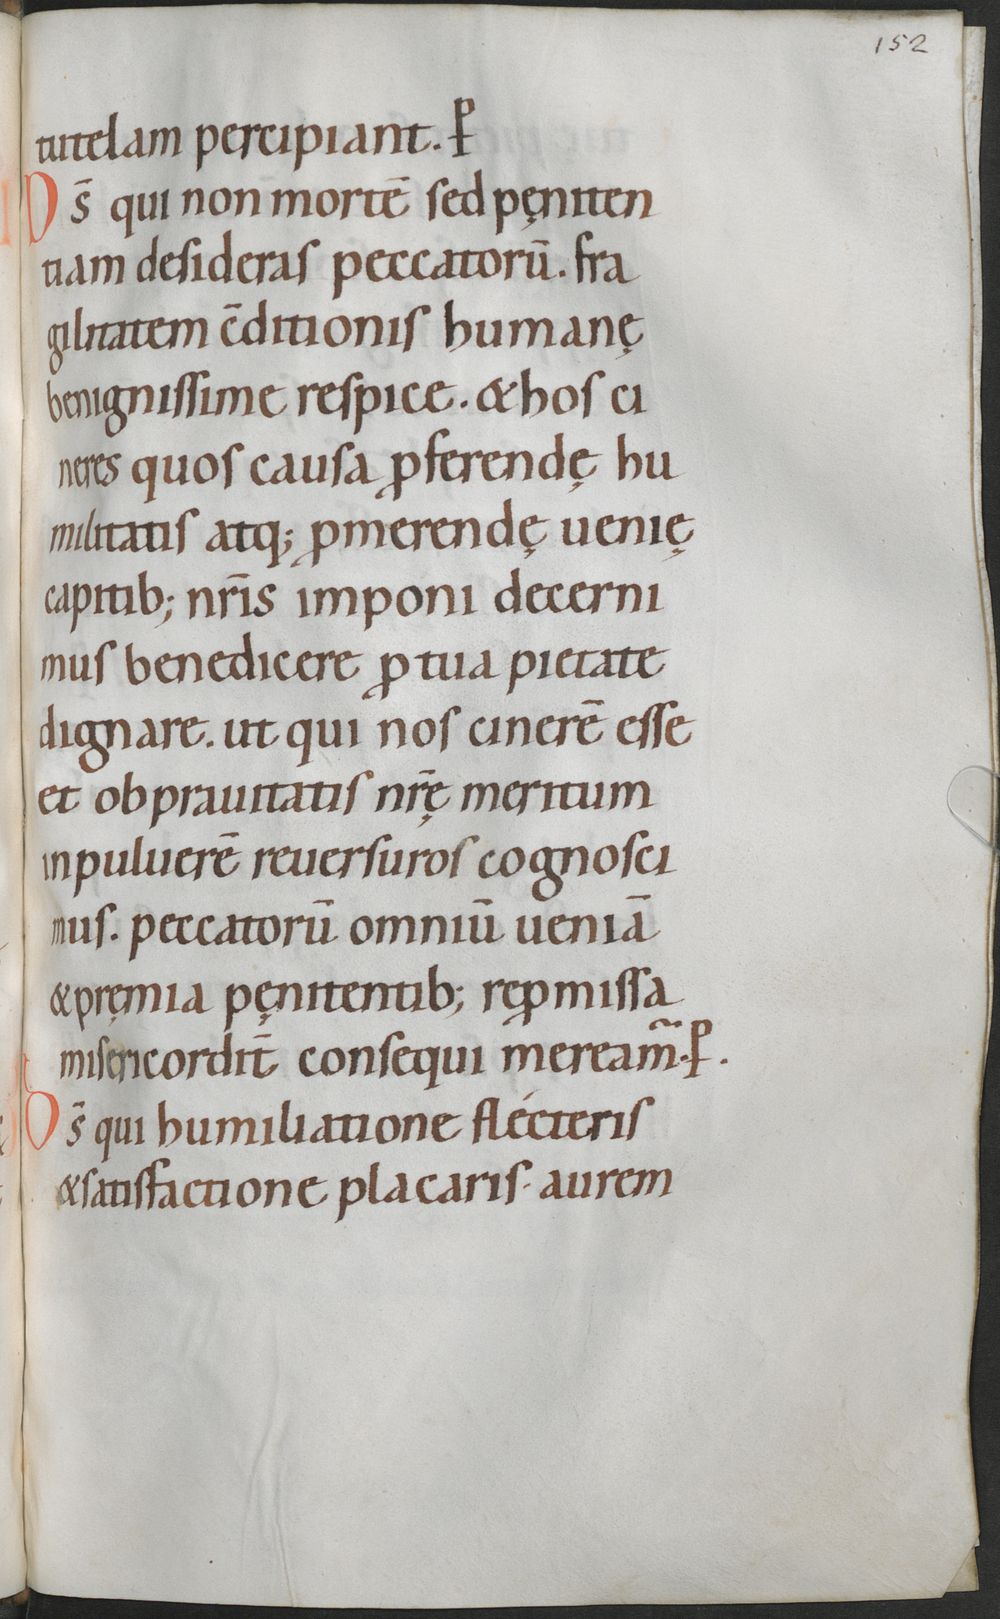 152
tutelam percipiant. ꝑ
Ds̄ qui non mortē sed pęniten
tiam desideras peccatorū. fra
gilitatem c̄ditionis humanę
benignissime respice. & hos ci
neres quos causa ꝓferendę hu
militatis atq; ꝓmerendę uenię
capitib; nr̄is imponi decerni
mus benedicere ꝓ tua pietate
dignare. ut qui nos cinerē esse
et ob prauitatis nr̄ę meritum
in puluerē reuersuros cognosci
mus. peccatorū omniū ueniā
& pręmia pęnitentib; reꝓmissa
misericordit̄ consequi meream̄. ꝑ.
Ds̄ qui humiliatione flécteris
& satisfactione placaris. aurem